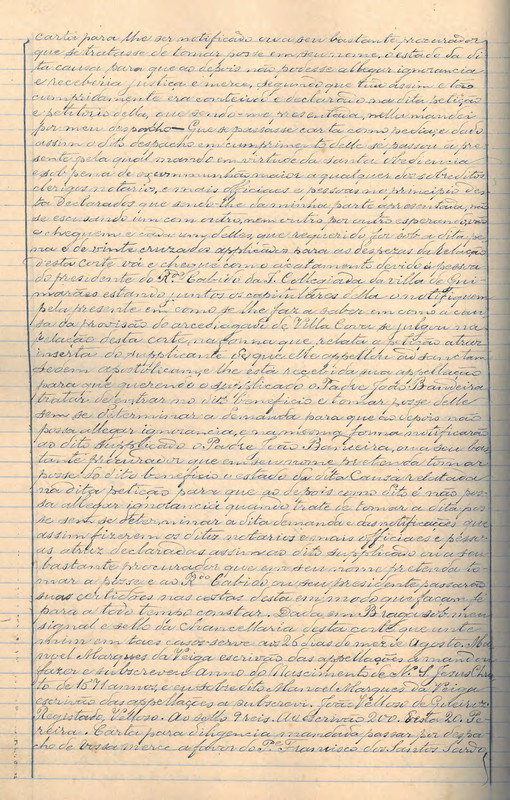 carta para lhe ser notificado ou a seu bastante procurador
que se tratasse de tomar posse em seu nome, o estado da di
ta causa para que ao depois não podesse allegar ignorancia
e receberia justiça e merce, segundo que tudo assim e tão
cumpridamente era conteudo e declarado na dita petição
e petitorio della, que sendo-me presentava, nella mandei
por meu despacho — Que se passasse carta como pedia, e dado
assim o dito despacho em cumprimento delle se passou a pre
sente pela qual mando em virtude da santa obediencia
e sob pena de excommunhão maior a qualquer dos sobreditos
clerigos notario, e mais officiaes e pessoas no principio des
ta declarados que sendo-lhe da minha parte apresentada, não
se escusando um com outro, nem outro por outro esperando, vão
e cheguem e cada um delles, que requerido for sob a dita pe
na e de vinte cruzados applicados para as despezas da Relação
desta corte vá e chegue com o acatamento devido á pessoa
do presidente do R.do Cabido da I. Collegiada da villa de Gui
marães estando juntos os capitulares della o notifiquem
pela presente em como se lhe faz a saber em como a cau
sa da provisão do arcediagado de Villa Cova se julgou na
relação desta corte, na forma que relata a petição atraz
inserta do supplicante e que elle appellou ad sanctam
sedem apostolicam, e lhe esta recebida sua appellação
para que querendo o supplicado o Padre João Banreira
tratar de entrar no dito beneficio e tomar posse delle
sem se determinar a demanda para que ao depois não
possa allegar ignorancia, e na mesma forma notificarão
ao dito supplicado o Padre João Banreira, ou a seu bas
tante procurador que em seu nome pretenda tomar
posse do dito beneficio o estado da dita Causa relatada
na dita petição para que ao depois como dito é não pos
sa allegar ignorancia quando trate de tomar a dita pos
se sem se determinar a dita demanda e das notificações que
assim fizerem os ditos notarios e mais officiaes e pessoas
as atraz declaradas assim ao dito supplicado ou a seu
bastante procurador que em seu nome pretenda to
mar a posse e ao R.do Cabido, ou seu presidente passarão
suas certidões nas costas desta em modo que façam fé
para a todo tempo constar. Dada em Braga sob meu
signal e sello da Chancellaria desta corte que ante
mim em taes casos serve aos 25 dias do mez de Agosto. Ma
noel Marques da Veiga escrivão das appellações a mandou
fazer e subscreveu Anno do Nascimento de N. S. Jesus Chris
to de annos, e eu sobredito Manoel Marques da Veiga
escrivão das appellações a subscrevi. João Velloso de
Registado, Velloso. Ao sello 9 reis. Ao escrivão 200. Deste 20. Pe
reira. Carta para diligencia mandada passar por despa
cho de vossa merce a favor do P.e Francisco dos Santos